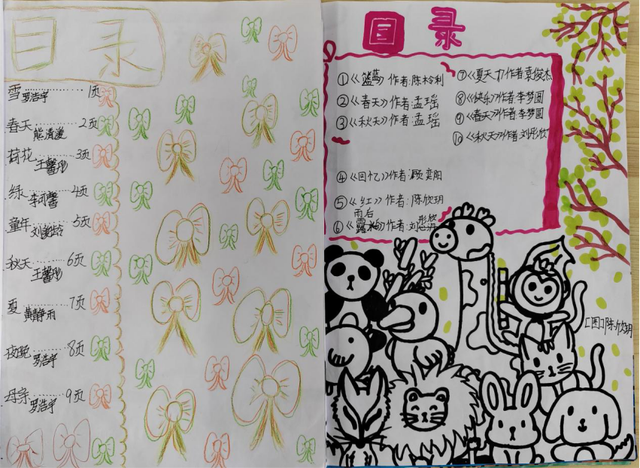 目录
雪………1页
罗浩宇
春天……2页
荷花……3页
绿……4页
李可馨
童年……5页
秋天……6页
夏………7页
黄静雨
夜晚……8页
罗浩宇
母亲……9页
罗浩宇
目录
①《》作者:陈利
②《春天》作者:孟瑶
③《秋天》作者:孟瑶
④《回忆》作者:阳
⑤《红》作者:陈欣玥
雨后
⑥《露水》作者:刘
⑦《夏天了》作者袁俊杰
⑧《快乐》作者:李梦圆
⑨《春天》作者:李梦圆
⑩《秋天》作者:刘彤欣
[图]陈欣玥